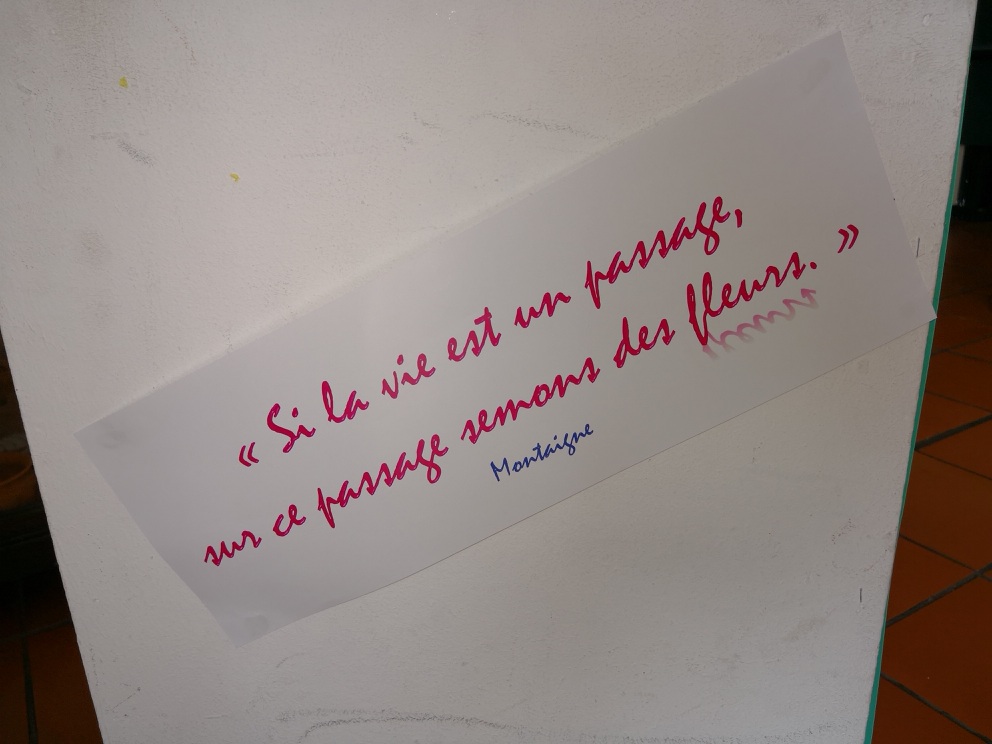 « Si la vie est un passage,
sur ce passage semons des fleurs. »
Montaigne